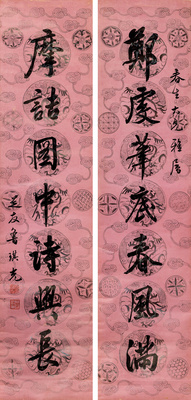 春生大兄雅屬
鄭虔筆底春風滿
摩詰圖中詩興長
益友魯琪光